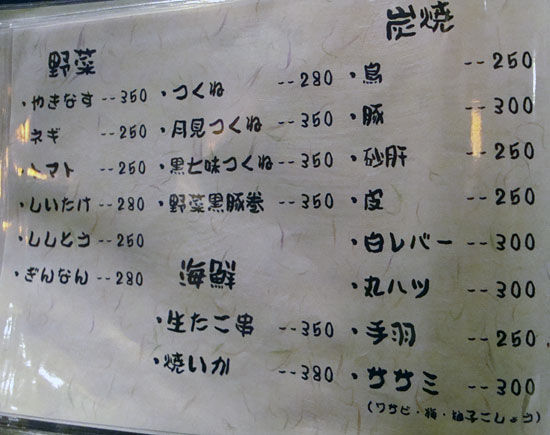 炭焼
・鳥 --250
・豚 --300
・砂肝 --250
・皮 --250
・白レバー --300
・丸ハツ --300
・手羽 --250
・ササミ --300
(ワサビ・梅・柚子こしょう)
・つくね --280
・月見つくね --350
・黒七味つくね --350
・野菜黒豚巻 --350
海鮮
・生たこ串 --350
・焼いか --380
野菜
・やきなす --350
・ネギ --250
・トマト --250
・しいたけ --280
・ししとう --250
・ぎんなん --280